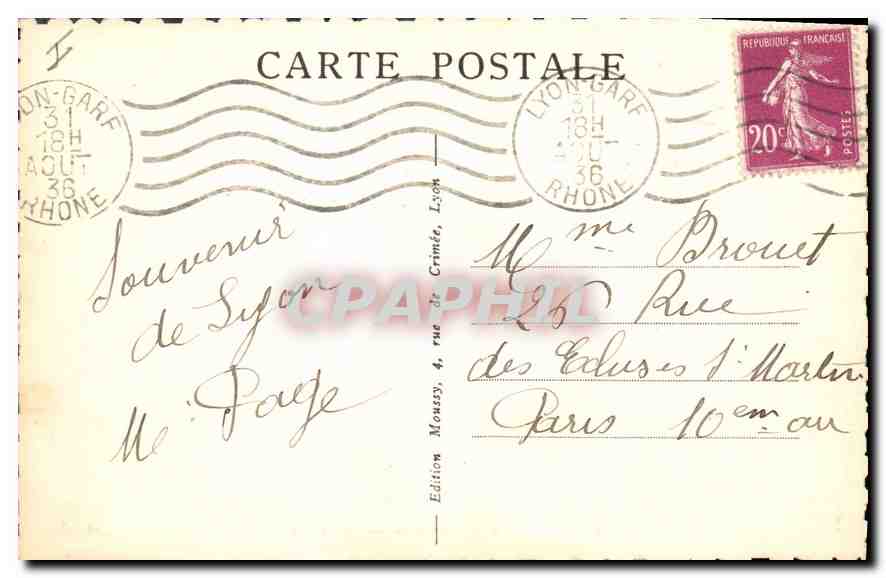 I
CARTE POSTALE
LYON-GARE
31
18H
AOUT
36
RHONE
LYON-GARE
31
18H
AOUT
36
RHONE
REPUBLIQUE FRANCAISE
20c
POSTES
Souvenir
de Lyon
M. Page
Edition Moussy, 4, rue de Crimée, Lyon
Mme Brouet
26 Rue
des Ecluses St Martin
Paris 10em arr
CPAPHIL